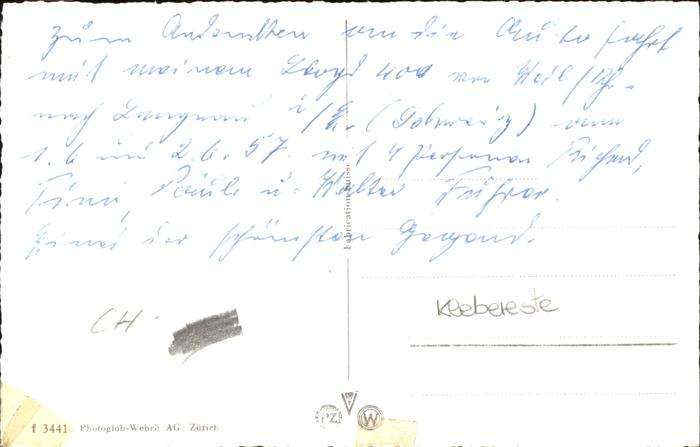 zum Andenken an die Autofahrt
mit meinem Lloyd 400 von Weil/Rh.
nach Langnau i/E. (Schweiz) vom
1.6 und 2.6.57. mit 4 Personen Richard,
Fini, Paule u. Walter Führer.
Eines der schönsten Gegend.
CH-
Klebereste
Fabrication Suisse
PZ
W
f 3441 Photoglob-Wehrli AG. Zürich